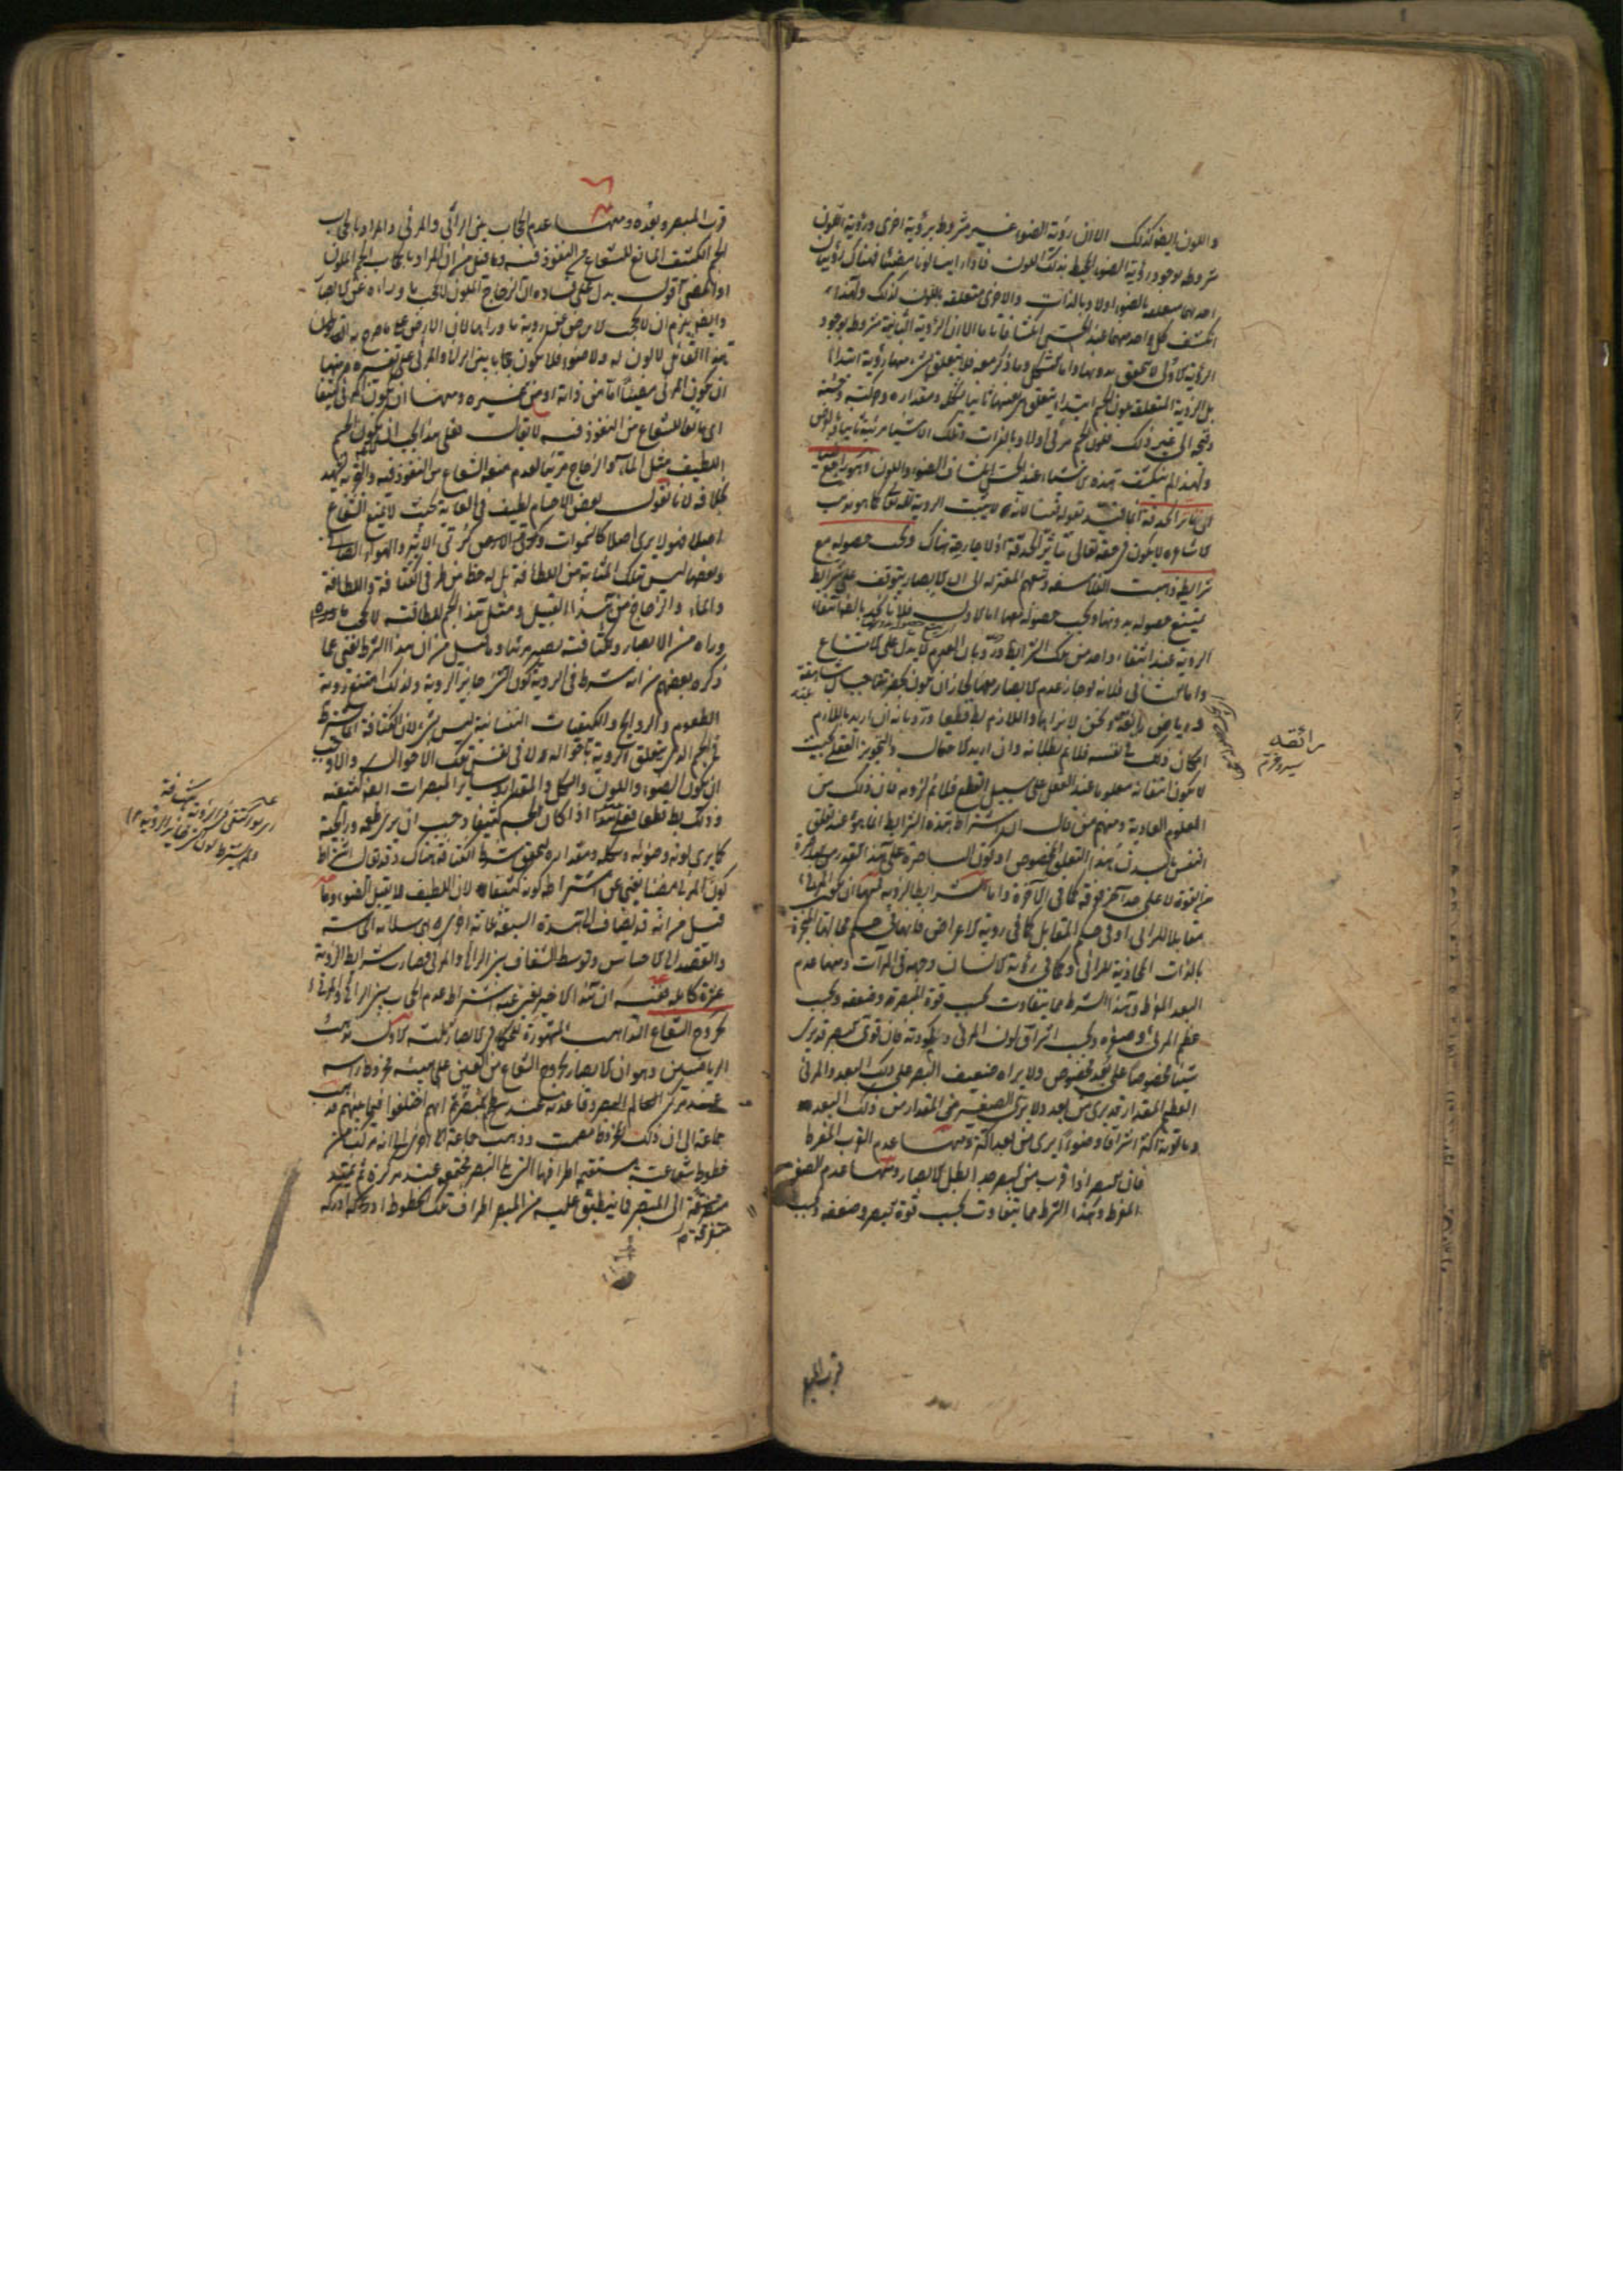 واللون ايضا كذلك الا ان رؤية الضوء غير مشروط برؤية اخرى ورؤية اللون
مشروط بوجود رؤية الضوء المحيط بذلك اللون فاذا رايت لونا مضيئا فهناك رؤيتان
احديهما متعلقة بالضوء اولا وبالذات والاخرى متعلقة باللون كذلك ولهذا
انكشف كل واحد منهما عند الحس انكشافا تاما الا ان الرؤية الثانية مشروط بوجود
الرؤية الاولى لا تتحقق بدونها واما الشكل وما ذكر معه فلا يتعلق بشئ منها رؤية ابتداء
بل الرؤية المتعلقة بلون الجسم ابتداء يتعلق هى بعينها ثانيا بشكله ومقداره وحركته وحسنه
وقبحه الى غير ذلك فلون الجسم مرئى اولا وبالذات وتلك الاشياء مرئية ثانيا وبالعرض
ولهذا لم ينكشف هذه الاشياء عند الحس انكشاف الضوء واللون وهو راجع فينا
الى تاثر الحدقة انما قيد بقوله فينا لانه لا يثبت الرؤية لله تعالى كما هو مذهب
الاشاعره لا يكون فى حقه تعالى بتاثر الحدقة اذ لا جارحة هناك ويجب حصوله مع
شرايطه ذهبت الفلاسفه وتبعهم المعتزله الى ان الابصار يتوقف على شرايط
يمتنع حصوله بدونها ويجب حصوله معها اما الاول فلانا نجد بالضرورة انتفاء
الرؤية عند انتفاء واحد من تلك الشرايط ورد بان العدم لا يدل على الامتناع
واما الثانى فلانه لو جاز عدم الابصار معها لجاز ان يكون بحضرتنا جبال شاهقة
ورياض رايقة ونحن لا نراها واللازم بط قطعا ورد بانه ان اريد باللازم
امكان ذلك فى نفسه فلا نم بطلانه وان اريد الاحتمال والتجويز العقلى بحيث
لا يكون انتفائه معلوما عند العقل على سبيل القطع فلا نم لزومه فان ذلك من
العلوم العادية ومنهم من قال ان اشتراط هذه الشرايط انما هو عند تعلق
النفس بالبدن هذا التعلق المخصوص او كون الباصرة على هذا القدر من
القوة لا على حد آخر فوقه كما فى الآخرة واما شرايط الرؤية فمنها ان يكون المرئى
مقابلا للرائى او فى حكم المقابل كما فى رؤية الاعراض فانها فى حكم محالها المتحيزة
بالذات المحاذية للرائى وكما فى رؤية الانسان وجهه فى المرآت ومنها عدم
البعد المفرط وهذا الشرط مما يتفاوت بحسب قوة الباصرة وضعفه وبحسب
عظم المرئى وصغره وبحسب اشراق لون المرئى وكمودته فان قوى البصر قد يرى
شيئا مخصوصا على بعد مخصوص ولا يراه ضعيف البصر على ذلك البعد والمرئى
العظيم المقدار قد يرى من بعد ولا يرى الصغير من المقدار من ذلك البعد
وما لونه اكثر اشراقا وضوءا يرى من بعد اكثر ومنها عدم القرب المفرط
فان المبصر اذا قرب من البصر جدا بطل الابصار ومنها عدم الصغر
المفرط وهذا الشرط مما يتفاوت بحسب قوة البصر وضعفه وبحسب
رائقه
قرب المبصر
قرب المبصر وبعده ومنها عدم الحجاب بين الرائى والمرئى والمراد بالحجاب
الجسم الكثيف المانع للشعاع من النفوذ فيه وما قيل من ان المراد بالحجاب الجسم الملون
او المضئ اقول يدل على فساده ان الزجاج الملون لا يحجب ما وراءه عن الابصار
وايضا يلزم ان لا يحجب الارض عن رؤية ما وراءها لان الارض على ما صرح به
هذا القائل لا لون له ولا ضوء فلا يكون حجابا بين الرائى والمرئى على تفسيره ومنها
ان يكون المرئى مضيئا اما من ذاته او من غيره ومنها ان يكون المرئى كثيفا
اى مانعا للشعاع من النفوذ فيه لا يقال فعلى هذا يجب ان لا يكون الجسم
اللطيف مثل الماء والزجاج مرئيا لعدم منعه الشعاع من النفوذ فيه والتجربة تشهد
بخلافه لانا نقول بعض الاجسام لطيف فى الغاية بحيث لا يمنع الشعاع
اصلا فهو لا يرى اصلا كالسموات وكرتى الاثير والهواء الصافى
وبعضها ليس بتلك المثابة من اللطافة بل له حظ من طرفى الكثافة واللطافة
والماء والزجاج من هذا القبيل ومثل هذا الجسم للطافته لا يحجب ما
وراه من الابصار ولكثافته يصير مرئيا وما قيل من ان هذا الشرط يغنى عما
ذكره بعضهم من انه شرط فى الرؤية كون الشئ جايز الرؤية ولذلك امتنع رؤية
الطعوم والروايح والكيفيات النفسانية ليس بشئ لان الكثافة انما يشترط
فى الجسم الذى يتعلق الرؤية باحواله لا فى نفس تلك الاحوال والا وجب
ان يكون الضوء واللون والشكل والمقدار وساير المبصرات ايضا كثيفه
وذلك بط قطعا فعلى هذا اذا كان الجسم كثيفا وجب ان يرى طعمه ورائحته
كما يرى لونه وضوئه وشكله ومقداره لتحقق شرط الكثافة هناك وقد يقال اشتراط
كون المرئى مضيئا يغنى عن اشتراط كونه كثيفا لان اللطيف لا يقبل الضوء وما
قيل من انه قد يضاف الى هذه السبعة ثلثة اخرى هى سلامة الحاسة
والقصد الى الاحساس وتوسط الشفاف بين الرائى والمرئى فصارت شرايط الرؤية
عشرة كاملة ففيه ان هذا الاخير يغنى عنه اشتراط عدم الحجاب بين الرائى والمرئى
بخروج الشعاع المذاهب المشهورة للحكماء فى الابصار ثلثة الاول مذهب
الرياضيين وهو ان الابصار بخروج الشعاع من العين على هيئة مخروط راسه
عند مركز البصر وقاعدته عند سطح المبصر ثم انهم اختلفوا فيما بينهم فذهب
جماعة الى ان ذلك المخروط مصمت وذهب جماعة اخرى الى انه مركب من
خطوط شعاعية مستقيمة اطرافها التى يلى البصر مجتمعة عند مركزه ثم يمتد
متفرقة الى المبصر فما ينطبق عليه من المبصر اطراف تلك الخطوط ادركه
متفرقة